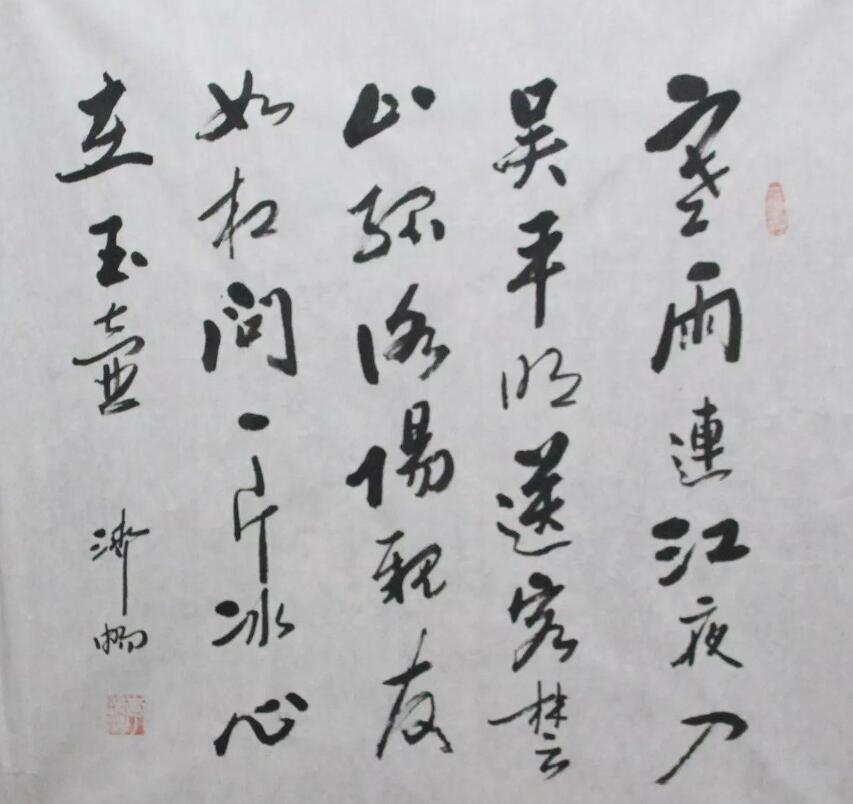 寒雨連江夜入
吳平明送客楚
山孤洛陽親友
如相問一片冰心
在玉壺
濟暢